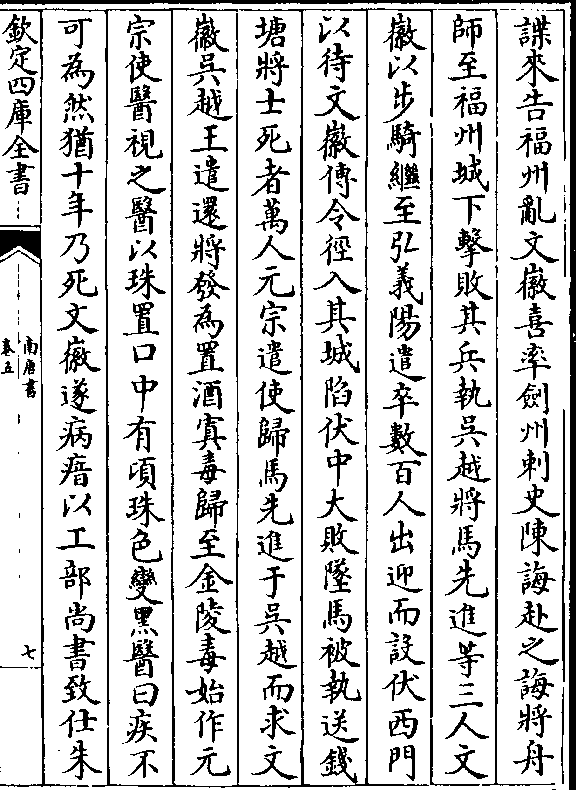 諜來告福州亂文徽喜率劍州刺史陳誨赴之誨將舟
師至福州城下擊敗其兵執吳越將馬先進等三人文
徽以步騎繼至弘義陽遣卒數百人出迎而設伏西門
以待文徽傳令徑入其城陷伏中大敗墜馬被執送錢
塘將士死者萬人元宗遣使歸馬先進于吳越而求文
徽吳越王遣還將發為置酒寘毒歸至金陵毒始作元
宗使醫視之醫以珠置口中有頃珠色變黑醫曰疾不
可為然猶十年乃死文徽遂病瘖以工部尚書致仕朱
欽定四庫全書
南唐書
卷五
七